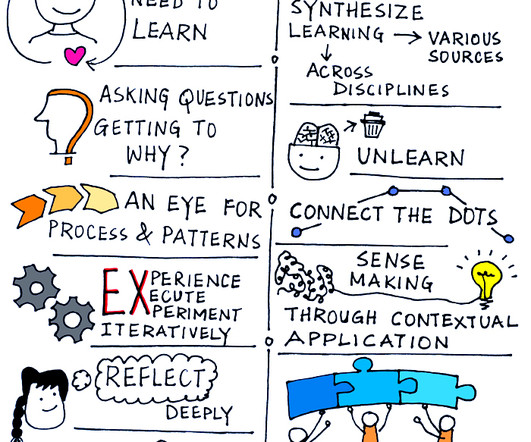 NEED TO
LEARN
ASKING QUESTIONS
GETTING TO
WHY?
AN EYE FOR
PROCESS & PATTERNS
EXPERIENCE
EXECUTE
EXPERIMENT
ITERATIVELY
REFLECT
DEEPLY
SYNTHESIZE
LEARNING → VARIOUS
SOURCES
ACROSS
DISCIPLINES
UNLEARN
CONNECT THE DOTS
SENSE
MAKING
THROUGH CONTEXTUAL
APPLICATION